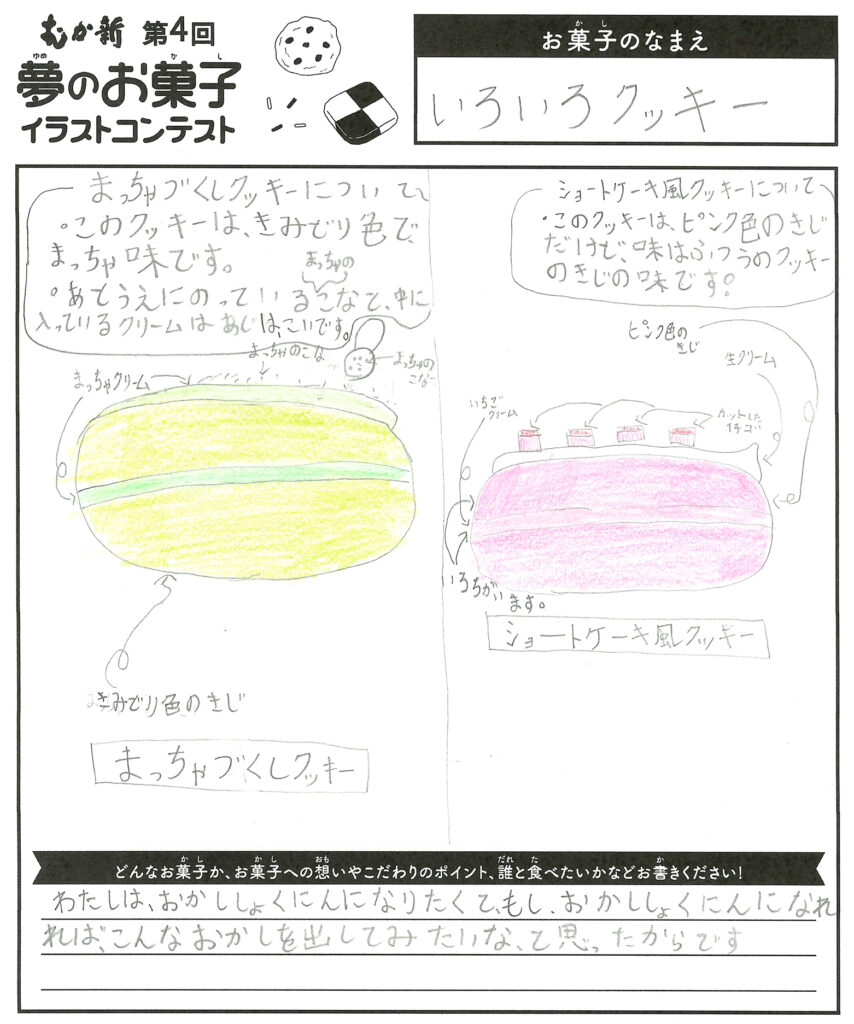 むか新 第4回
夢のお菓子
ゆめ か し
イラストコンテスト
お菓子のなまえ
か し
いろいろクッキー
まっちゃづくしクッキーについて
・このクッキーは、きみどり色で、
まっちゃ味です。
まっちゃの
・あとうえにのっているこなと、中に
入っているクリームはあじは、こいです。
まっちゃのこな
まっちゃの
こな
まっちゃクリーム
きみどり色のきじ
まっちゃづくしクッキー
ショートケーキ風クッキーについて
・このクッキーは、ピンク色のきじ
だけど、味はふつうのクッキー
のきじの味です。
ピンク色の
きじ
生クリーム
いちご
クリーム
カットした
イチゴ
いろちがい
ます。
ショートケーキ風クッキー
どんなお菓子か、お菓子への想いやこだわりのポイント、誰と食べたいかなどお書きください!
か し か し おも だれ た か
わたしは、おかししょくにんになりたくて、もし、おかししょくにんになれ
れば、こんなおかしを出してみたいな、と思ったからです